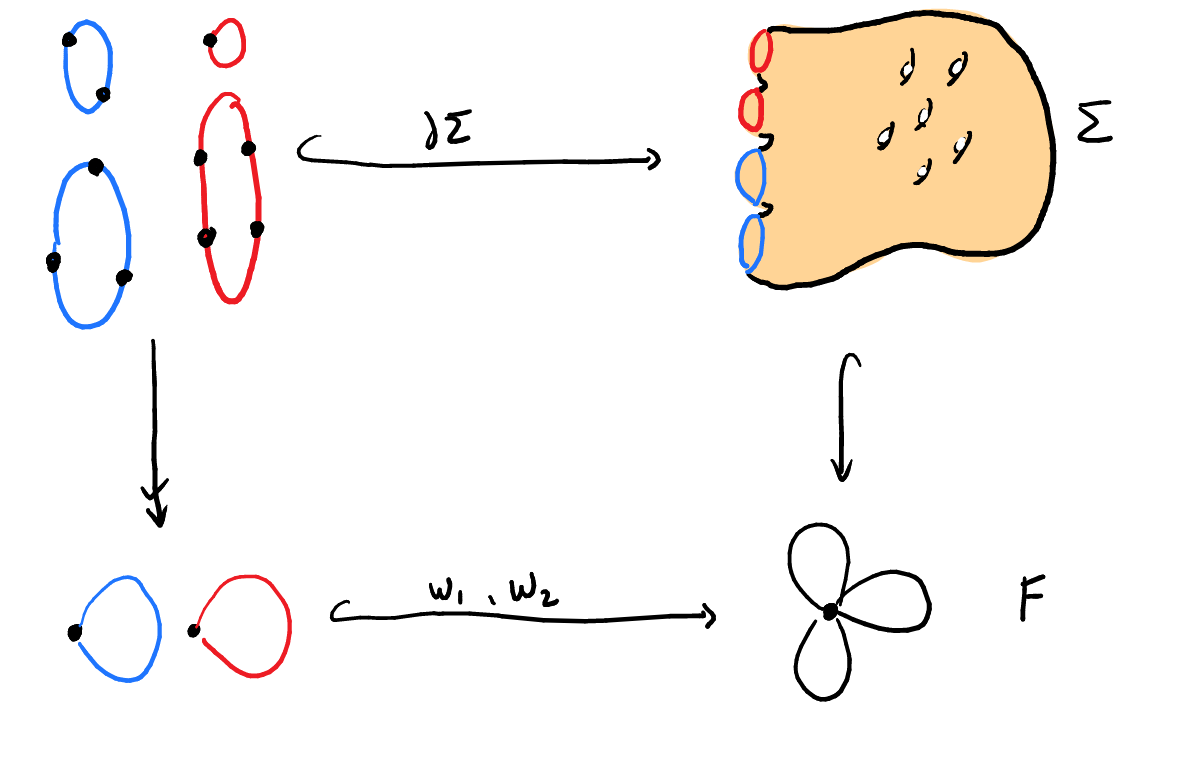 ∂Σ
Σ
w₁, w₂
F